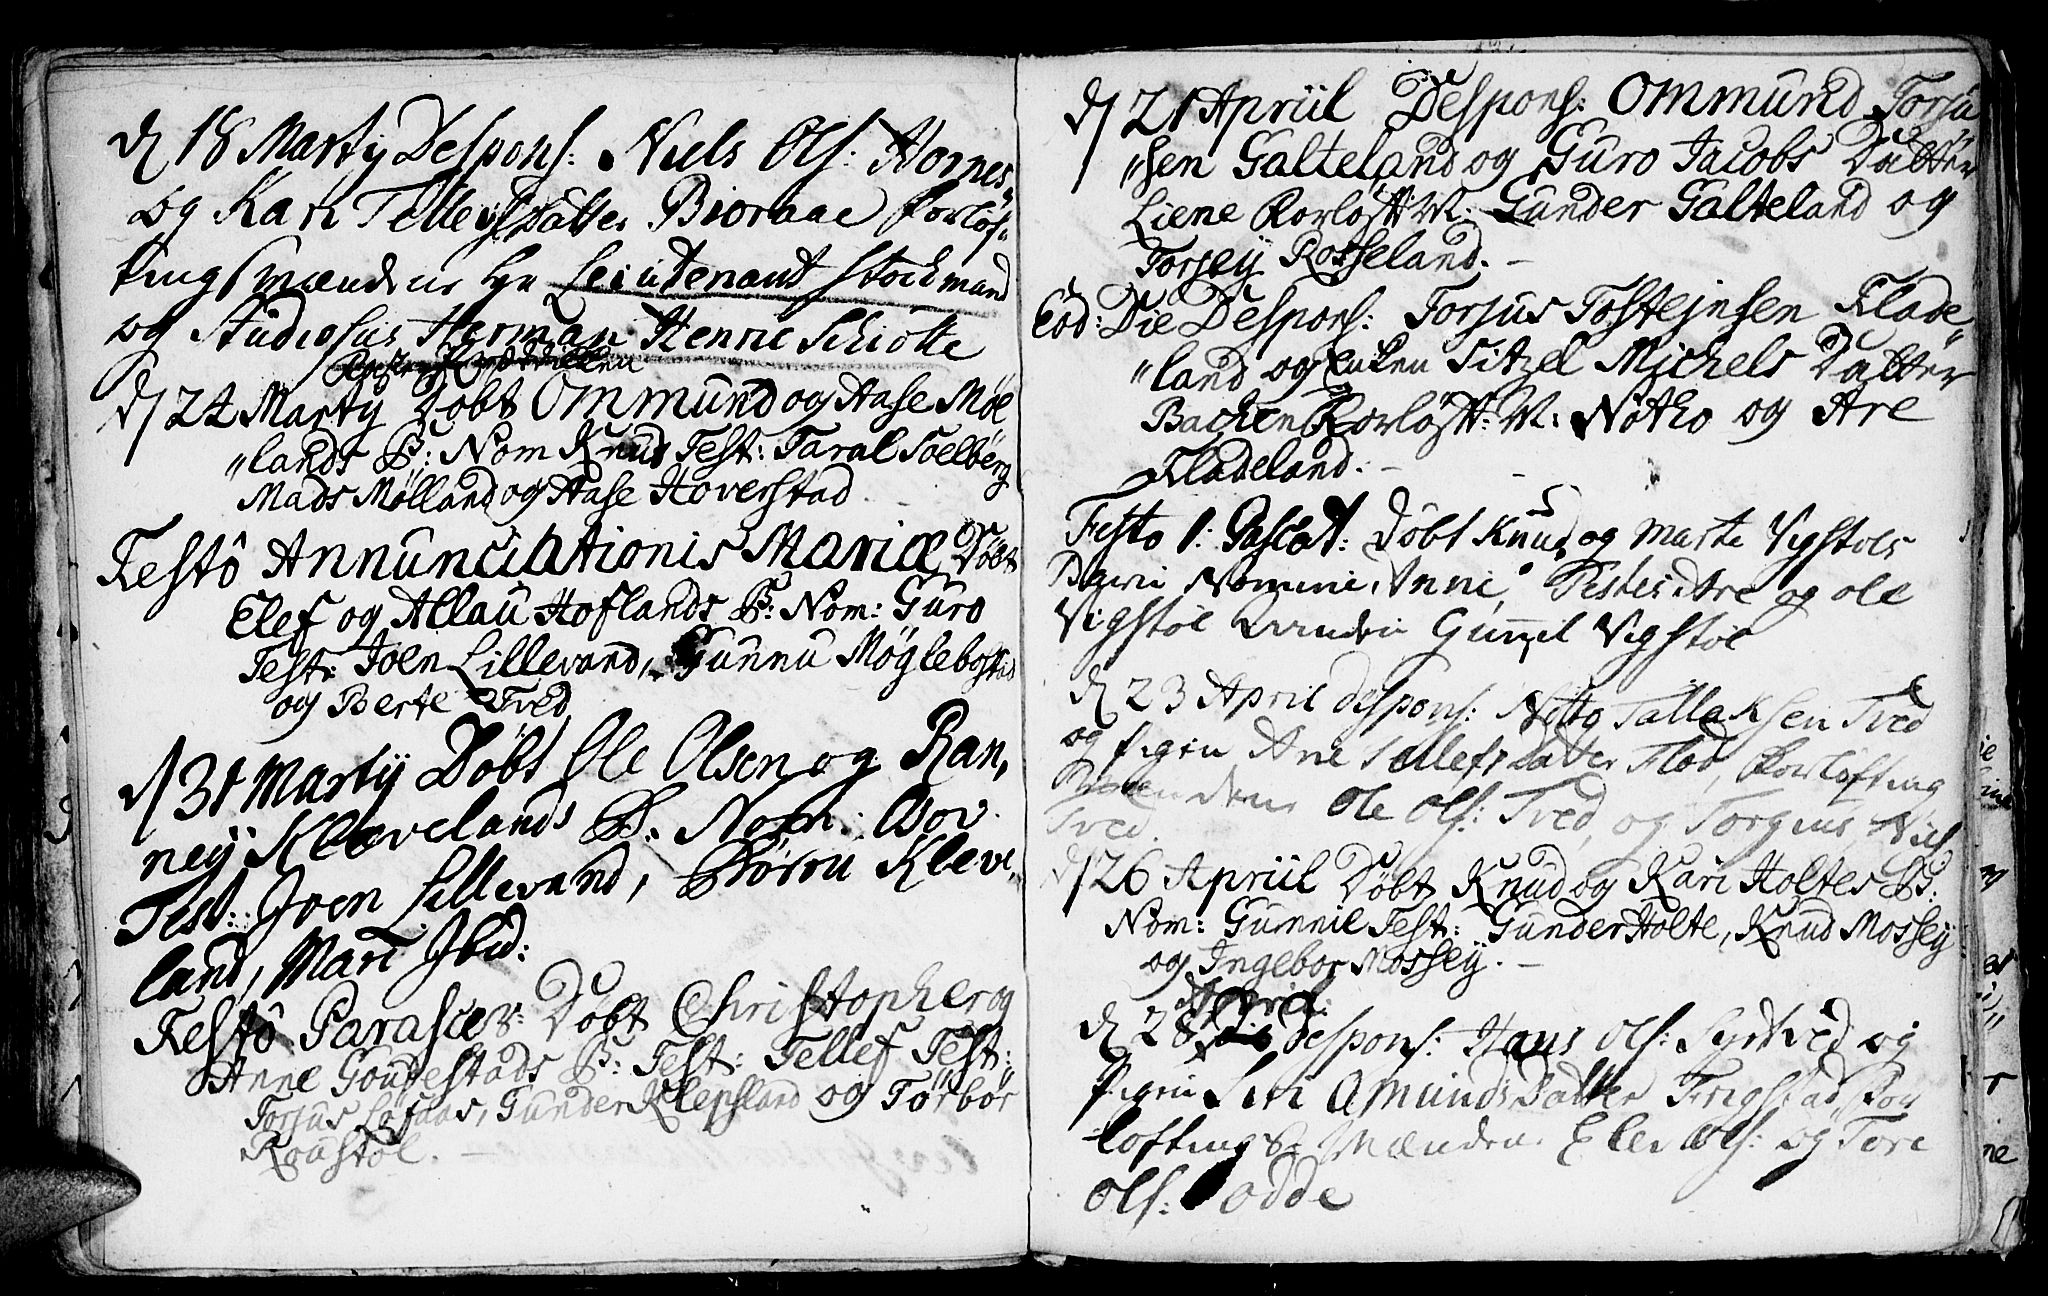 d 18 Marty Despons: Niels Ols: Hornes
og Kari Tellefs Datter Bioraae forløf„
tingsmændene Hr Leiutenant Stockmand
og Studiosus Herman Henric Schiøtte
d 24 Marty Døbt Ommund og Aase Møl
„lands B: Nom Knud Test: Taral Soelberg
Mads Mølland og Aase Hoverstad
Festô Annunciationis Mariæ Døbt
Elef og Allau Hoflands B: Nom: Guro
Test: Joen Lillevand, Gunnu Møglebostad
og Berte Tved
d 31 Marty Døbt Ole Olsen og Ran,
ney Klevelands B: Nom:
Test: Joen Lillevand, Kleve,
land, Mari Ibid:
Festô Parasceu: Døbt Christopher og
Anne Goudestads B: Test: Tellef Test:
Torjus Løfaas, Gunder Klepsland og Torbor
Roustøl.
d 21 Apriil Despons: Ommund Torju
„sen Galteland og Guro Jacobs Datter
Liene Forløft: M: Gunder Galteland og
Torjey Rosseland. –
Eod: Die Despons: Torjus Tostejnsen Flade„
„land og Enken Sitzel Michels Datter
Backen Forløft: M: Notto og Are
Fladeland. –
Festo 1: Paschat: Døbt Knud og Marte Vigstøls
Pigen Nomine Anne, Testes Are og ole
Vigstøl Gunnil Vigstøl
d 23 April despons: Notto Tallaksen Tved
og pigen Ane Tellefs Datter Flod, Forløfting
Mændene Ole Ols: Tved, og Torgius Niel
Tved.
d 26 Apriil Døbt Knud og Kari Holtes B:
Nom: Gunnil Test: Gunder Holte, Knud Mossey
og Ingebor Mossey. –
April
d 28 Despons: Hans Ols: Sydtved og
pigen Siri Omunds Datter Frigstad, For
løftings Mændene Elev Ols: og Tore
Ols: odde